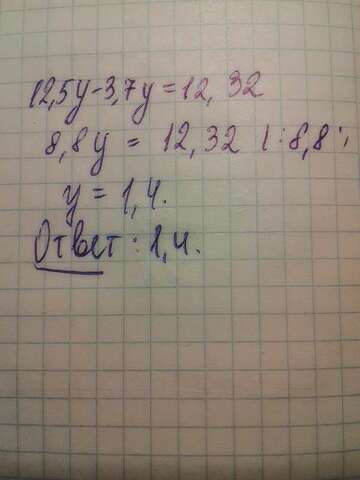 12,5y-3,7y=12,32
8,8y = 12,32 | :8,8;
y = 1,4.
Ответ: 1,4.